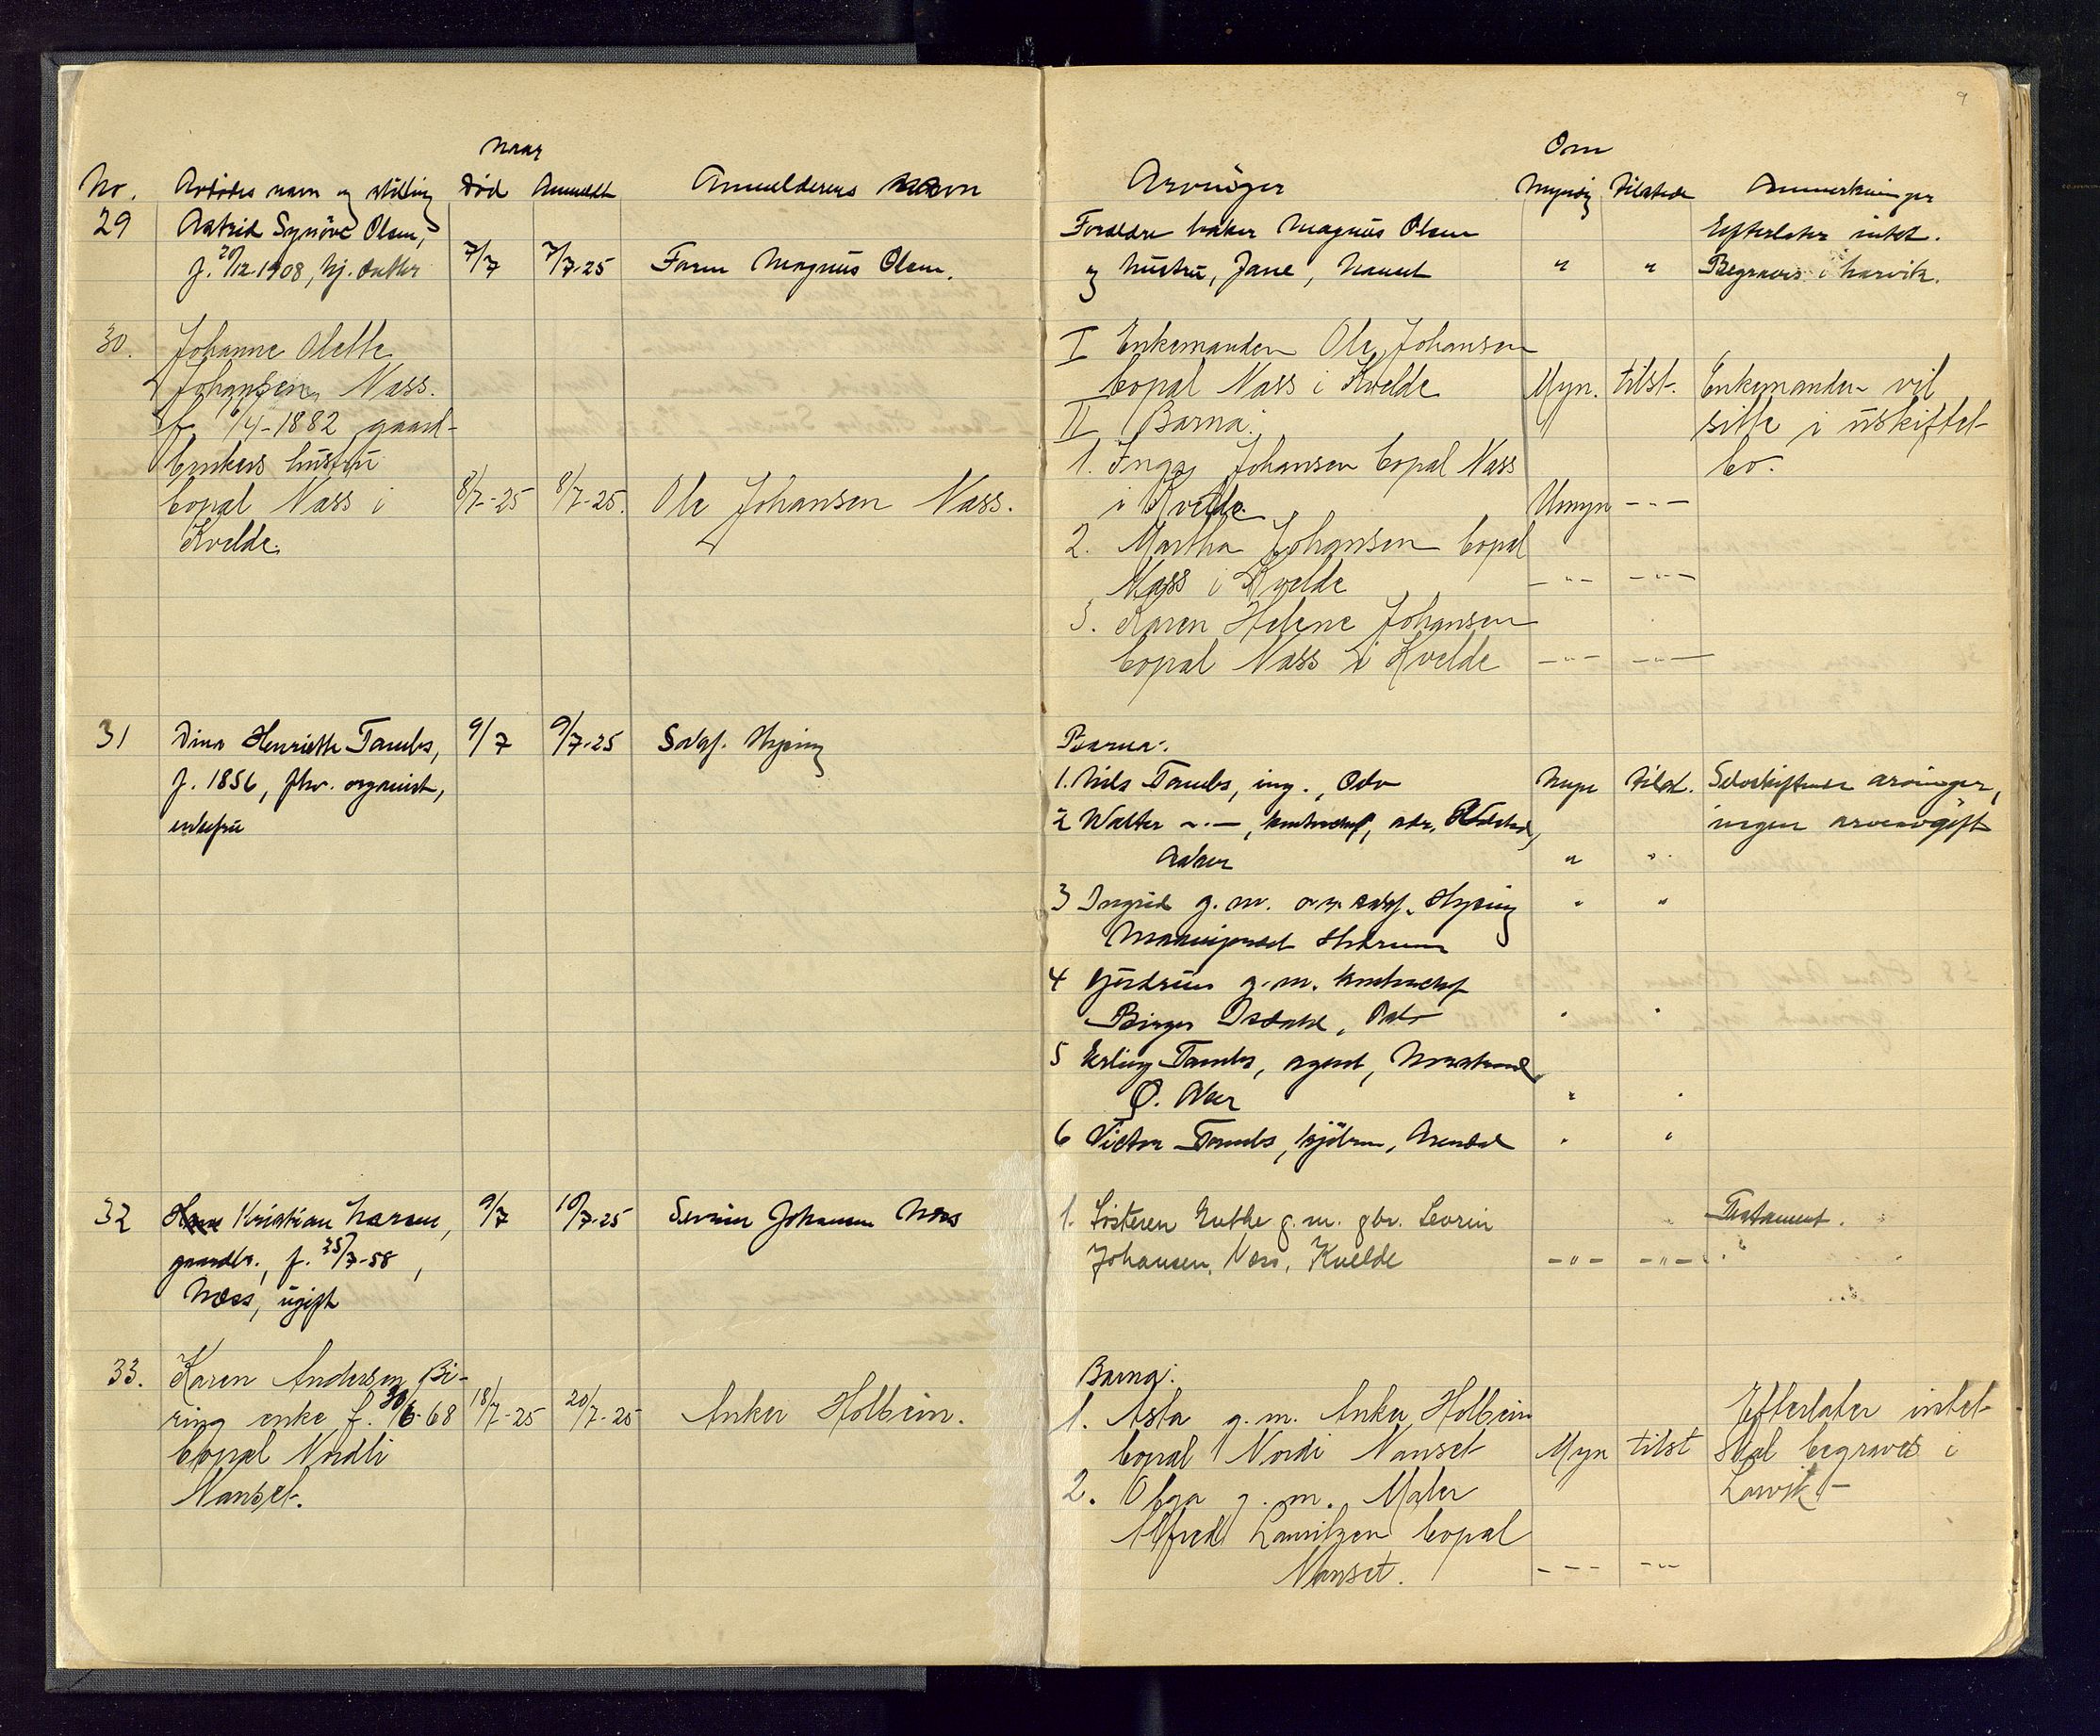 9
Naar
No. Avdødes navn og stilling Død Anmeldt Anmelderens navn
29 Astrid Synöve Olsen,
f. 20/12 1908, hj. datter 7/7 7/7-25 Faren Magnus Olsen.
30. Johanne Olette
Johansen, Næss.
f. 6/4-1882 gaard-
brukers hustru
bopæl Næss i 8/7-25 8/7-25. Ole Johansen Næss.
Kvelde.
31 Dina Henriette Tambs, 9/7 9/7-25 Sakf. Hysing
f. 1856, fhv. organist,
enkefru
32 Kristian Larsen, 9/7 10/7-25 Severin Johansen Næss
gaardbr., f. 25/7-58,
Næss, ugift
33. Karen Andersen Bi-
ring enke f. 30/6-68 18/7-25 20/7-25 Anker Holbein.
bopæl Nordli
Nanset.
Om
Arvinger Myndig Tilstede Anmerkninger
Foreldre baker Magnus Olsen Efterlater intet.
og hustru, Jane, Nanset " " Begraves i Larvik.
I Enkemanden Ole Johansen
bopæl Næss i Kvelde Myn. tilst. Enkemanden vil
II Barna: sitte i uskiftet
1. Inga Johansen bopæl Næss bo.
i Kvelde. Umyn - " -
2. Martha Johansen bopæl
Næss i Kvelde - " - - " -
3. Karen Helene Johansen
bopæl Næss i Kvelde - " - - " -
Barna:
1. Nils Tambs, ing., Oslo Myn tilst. Selvskiftende arvinger,
2 Walter - " -, kontorchef, adr. ingen arveavgift
Aker " "
3 Ingrid g. m. o.r. sakf. Hysing " "
4 Gudrun g. m. kontorchef
Birger Isdahl, Oslo " "
5 Erling Tambs, agent, Nordstrand
Ø. Aker " "
6 Victor Tambs, kjøbm., Arendal " "
1. Søsteren Grethe g. m. gbr. Sevrin Testament.
Johansen, Næss, Kvelde - " - - " -
Barna:
1. Asta g. m. Anker Holbein Efterlater intet
bopæl Nordli Nanset Myn tilst Skal begraves i
2. Olga g. m. Maler Larvik -
Alfred Lauritzen bopæl
Nanset. - " - - " -